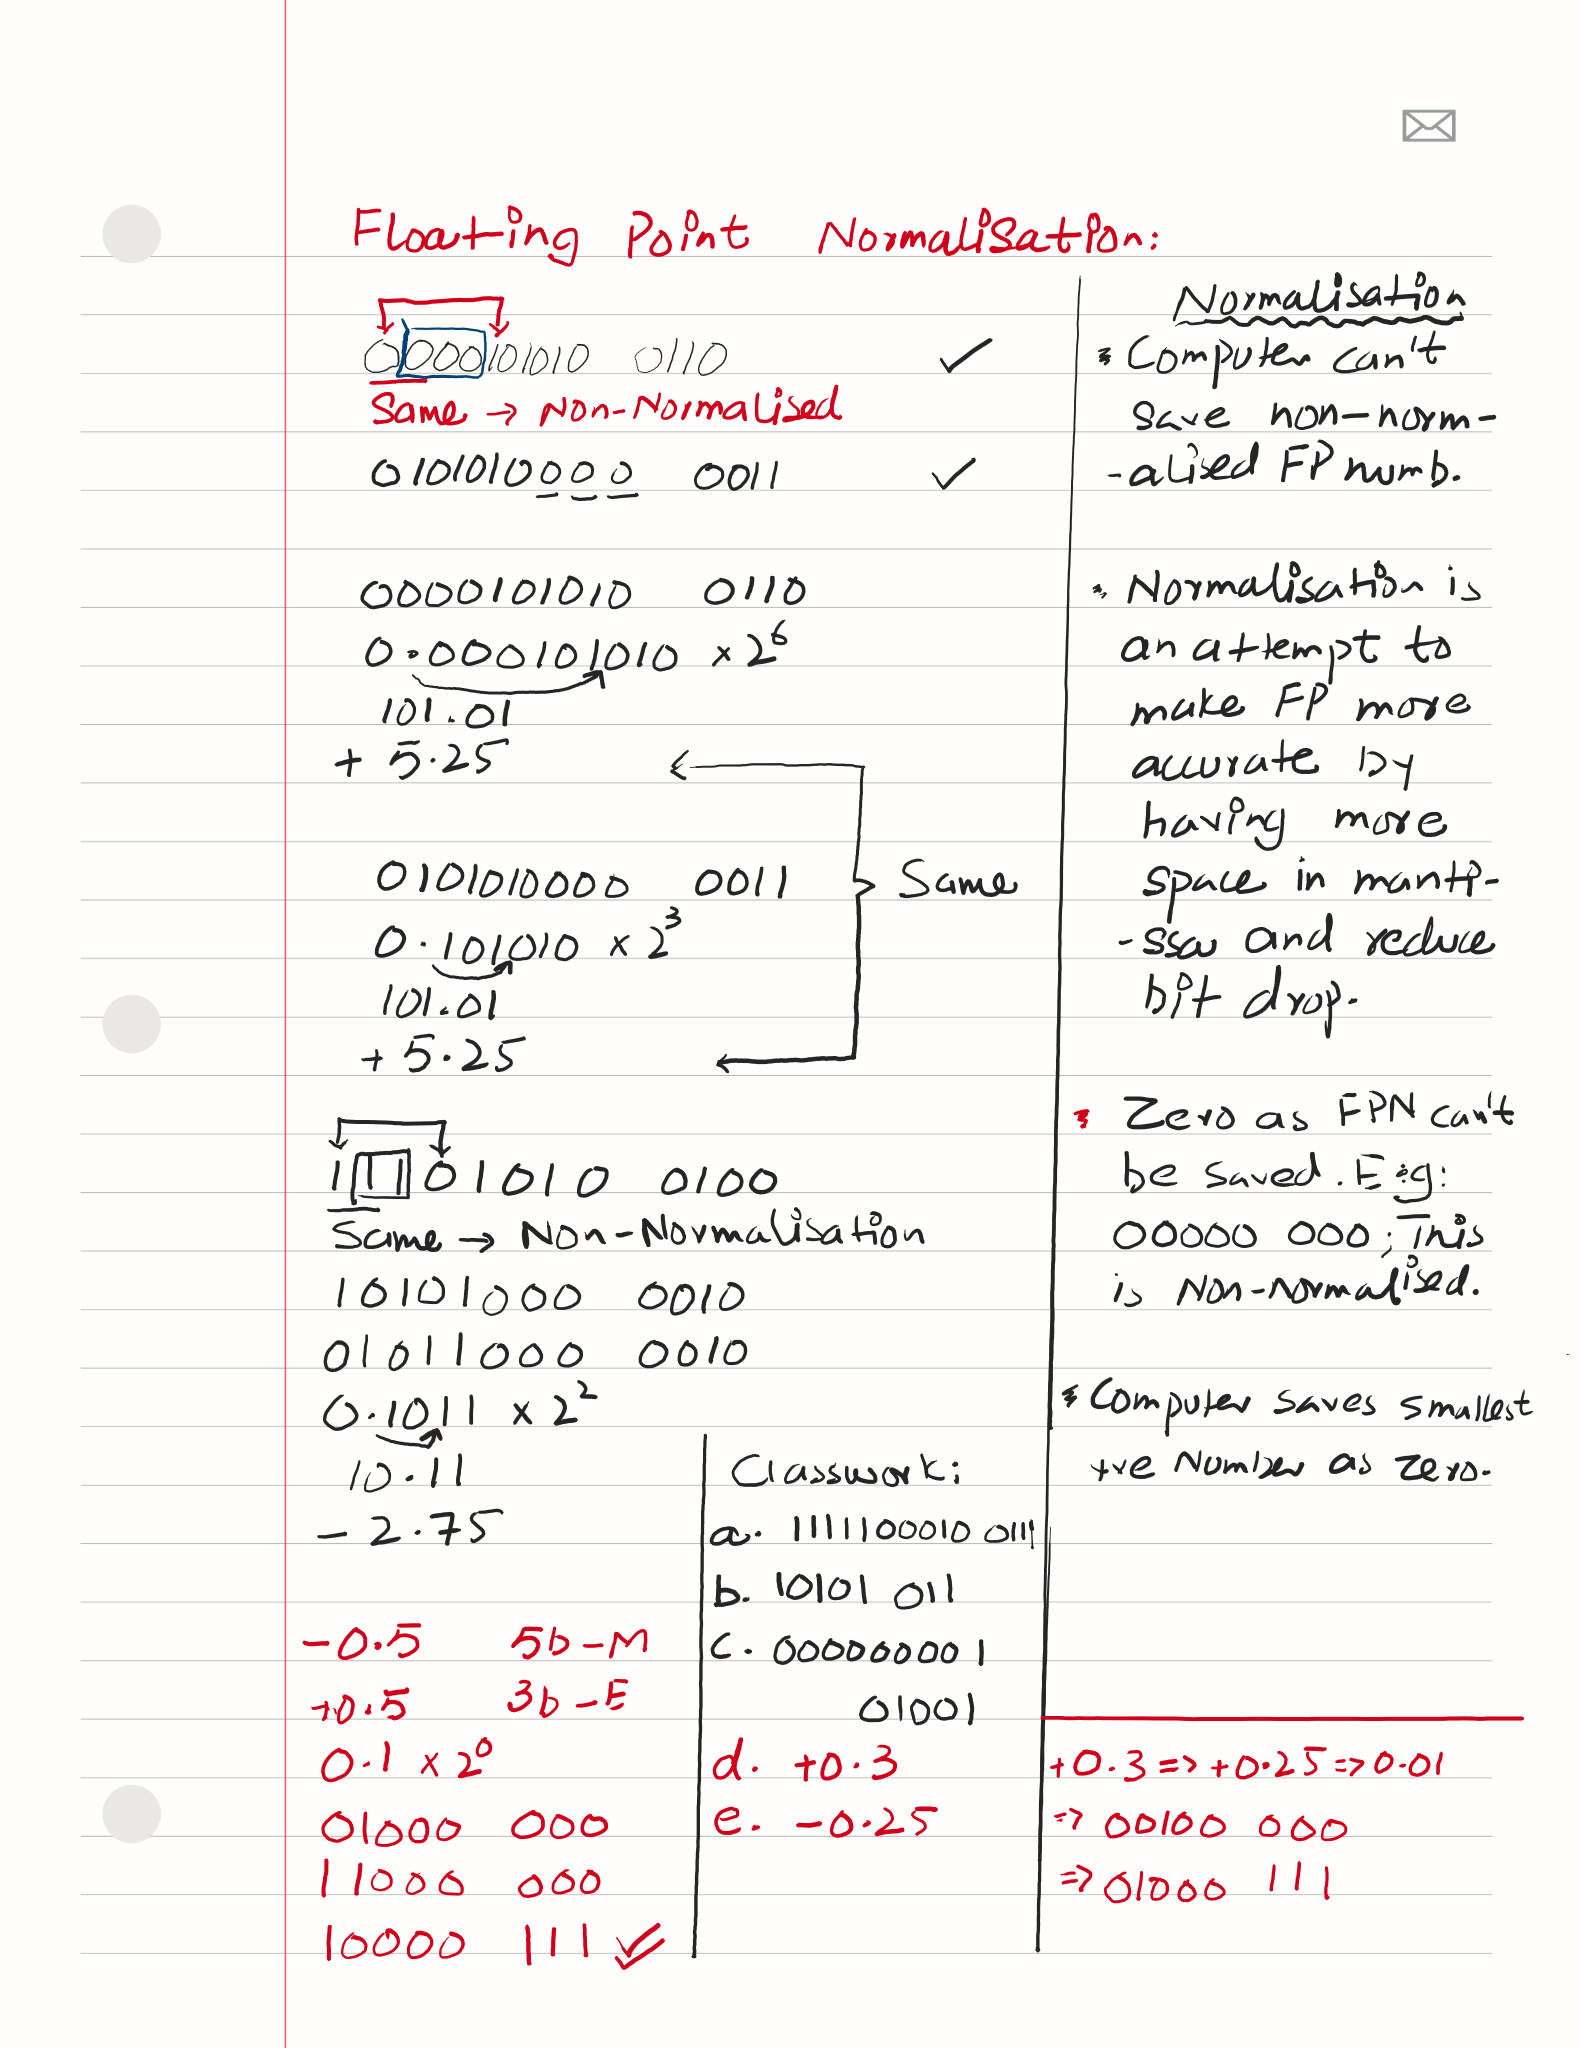 Floating Point Normalisation:
0000101010 0110 ✓
Same → Non-Normalised
0101010000 0011 ✓
0000101010 0110
0.000101010 × 2^6
101.01
+ 5.25
0101010000 0011
Same
0.101010 × 2^3
101.01
+ 5.25
11101010 0100
Same → Non-Normalisation
10101000 0010
01011000 0010
0.1011 × 2^2
10.11
- 2.75
-0.5 5b-M
+0.5 3b-E
0.1 × 2^0
01000 000
11000 000
10000 111 ✓
Classwork:
a. 1111100010 0111
b. 10101 011
c. 000000001
01001
d. +0.3
e. -0.25
Normalisation
* Computer can't
save non-norm-
-alised FP numb.
* Normalisation is
an attempt to
make FP more
accurate by
having more
space in manti-
-ssa and reduce
bit drop.
* Zero as FPN can't
be saved. E.g:
00000 000; This
is Non-normalised.
* Computer saves smallest
+ve Number as zero.
+0.3 => +0.25 => 0.01
=> 00100 000
=> 01000 111